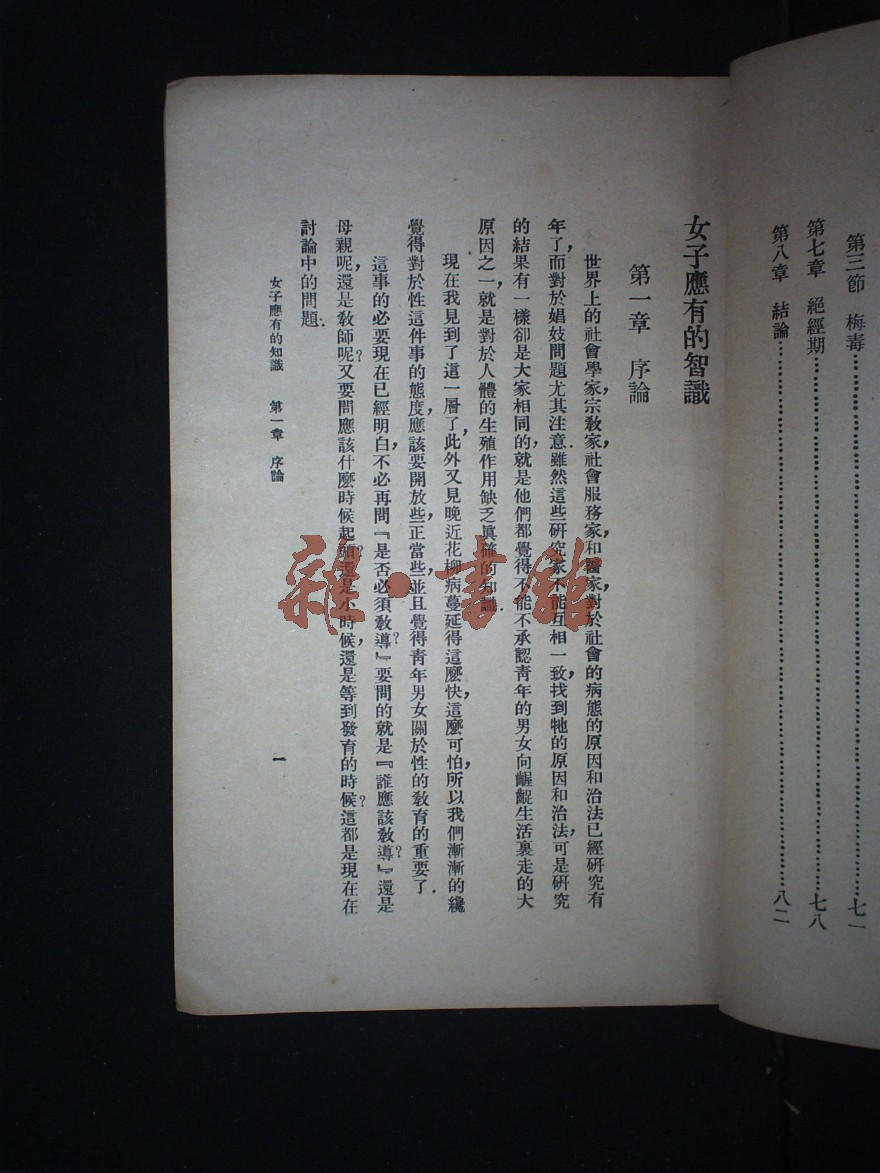 第三節　梅毒……………………七一
第七章　絕經期……………………七八
第八章　結論……………………八二
女子應有的智識
第一章　序論
世界上的社會學家，宗教家，社會服務家，和醫家，對於社會的病態的原因和治法已經研究有
年了，而對於娼妓問題尤其注意．雖然這些研究家不能互相一致，找到牠的原因和治法，可是研究
的結果有一樣卻是大家相同的，就是他們都覺得不能不承認青年的男女向齷齪生活裏走的大
原因之一，就是對於人體的生殖作用缺乏眞確的知識．
現在我見到了這一層了，此外又見晚近花柳病蔓延得這麼快，這麼可怕，所以我們漸漸的纔
覺得對於性這件事的態度，應該要開放些，正當些，並且覺得青年男女關於性的教育的重要了．
這事的必要現在已經明白，不必再問『是否必須教導？』要問的就是『誰應該教導？』還是
母親呢，還是教師呢？又要問應該什麼時候起頭？還是小時候，還是等到發育的時候？這都是現在在
討論中的問題．
女子應有的知識　第一章　序論
一
雜·書館